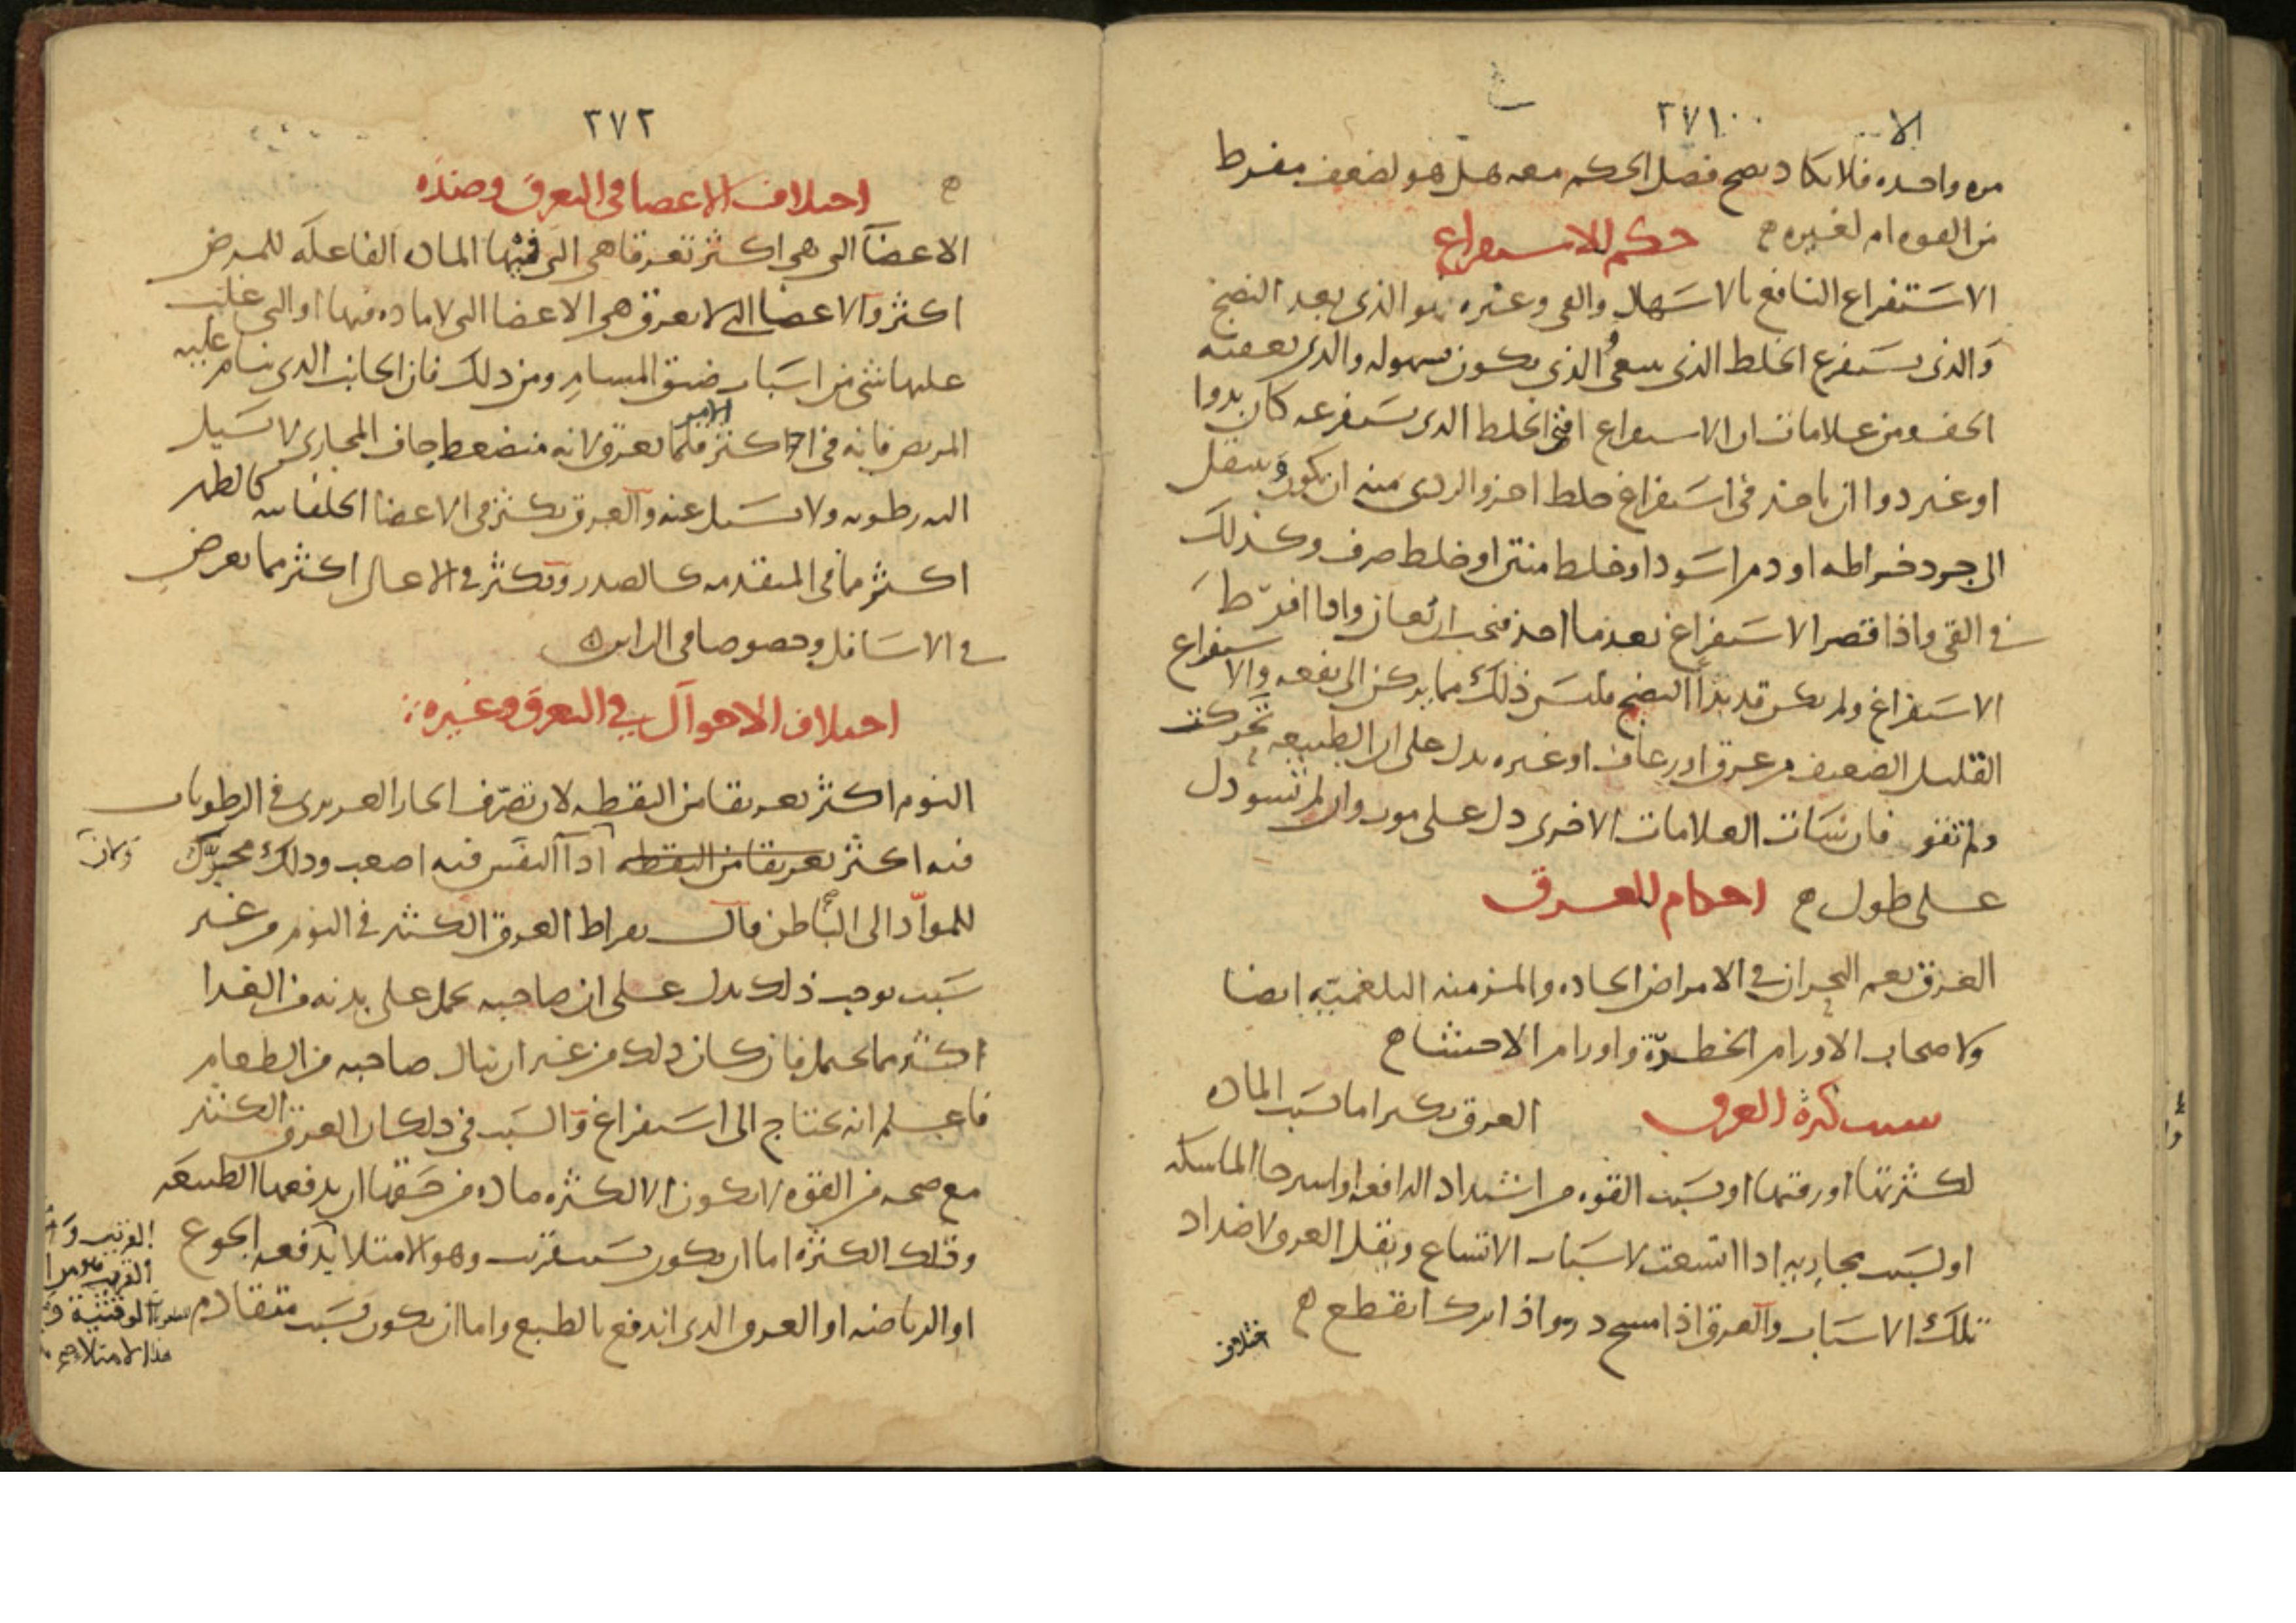 ٢٧١
مره واحده فلا يكاد يصح فصل الحكم معه هل هو لضعف مفرط
من القوه ام لغيره ه حكم للاستفراع
الاستفراع النافع بالاسهال والقى وغيره هو الذى بعد النضج
والذى يستفرع الخلط الذى ينبغى والذى يكون بسهوله والذى يعقبه
الخف ومن علامات ان الاستفراع افنى الخلط الذى يستفرعه كان بدوا
او غير دوا ان ياخذ فى استفراغ خلط اخر والردى منه ان يكون وينتقل
الى جرد خراطه او دم اسود او خلط منتن او خلط صرف وكذلك
فى القى واذا قصر الاستفراغ بعد ما اخذ فيجب ان يعان واذا افرط
الاستفراغ ولم يكن قد بدا النضج فليس ذلك مما يركن الى نفعه والاستفراع
القليل الضعيف من عرق او رعاف او غيره يدل على ان الطبيعه تحركت
ولم تقو فان ساات العلامات الاخرى دل على موت وان لم تسو دل
على طول ه احكام للعرق
العرق نعم البحران فى الامراض الحاده والمزمنه البلغميه ايضا
ولاصحاب الاورام الخطره واورام الاحشا ه
سبب كثرة العرق العرق يكثر اما بسبب الماده
لكثرتها او رقتها او بسبب القوه من اشتداد الدافعه او استرخا الماسكه
او بسبب مجاريه اذا اتسعت لاسباب الاتساع ويقل العرق لاضداد
تلك الاسباب والعرق اذا مسح در واذا ترك انقطع ه
اختلاف
٢٧٢
اختلاف الاعضا فى التعرق وضده
الاعضا التى هى اكثر تعرقا هى التى فيها الماده الفاعله للمرض
اكثر والاعضا التى لا تعرق هى الاعضا التى لا ماده فيها او التى غلب
عليها شى من اسباب ضيق المسام ومن ذلك فان الجانب الذى ينام عليه
المريض فانه فى اكثر الامر قلما يعرق لانه منضغط جاف المجارى لا تسيل
اليه رطوبه ولا تسيل عنه والعرق يكثر فى الاعضا الخلفانيه كالظهر
اكثر مما فى المتقدمه كالصدر ويكثر فى الاعالى اكثر مما يعرض
فى الاسافل وخصوصا فى الراس ه
اختلاف الاحوال فى التعرق وغيره
النوم اكثر تعريقا من اليقظه لان تصرف الحار الغريزى فى الرطوبات
فيه اكثر تعريقا من اليقظه اذا النفس فيه اصعب وذلك محرك
للمواد الى الباطن قال بقراط العرق الكثير فى النوم من غير
سبب يوجب ذلك يدل على ان صاحبه يحمل على بدنه من الغدا
اكثر مما يحتمل فان كان ذلك من غير ان ينال صاحبه من الطعام
فاعلم انه يحتاج الى استفراغ والسبب فى ذلك ان العرق الكثير
مع صحه من القوه لا يكون الا لكثره ماده من حقها ان يدفعها الطبيعه
وتلك الكثره اما ان يكون بسبب قريب وهو الامتلا يدفعه الجوع
او الرياضه او العرق الذى اندفع بالطبع واما ان يكون بسبب متقادم